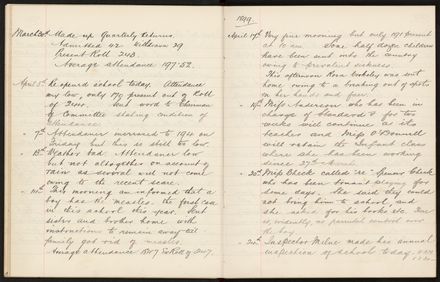 March 30th Made up Quarterly Returns.
Admitted 42 Withdrawn 29
Present Roll 243
Average attendance 197.52.
April 5th Re opened school today. Attendance
very low, only 178 present out of Roll
of 244. Sent word to Chairman
of Committee stating condition of
attendance.
7th Attendance increased to 194 on
Friday but this is still too low.
13th Weather bad. Attendance low
but not altogether on account of
rain as several will not come
owing to the recent scare.
14th This morning am informed that a
boy has the measles. The first case
in this school this year. Sent
sister and brother home with
instructions to remain away till
family got rid of measles.
Average attendance 187 Roll of 247.
1899.
April 17th Very fine morning but only 191 present
at 10 am. Some half dozen children
have been sent into the country
owing to prevalent sickness.
This afternoon Rosa was sent
home owing to a breaking out of spots
on her hands and face.
19th Miss Anderson who has been in
charge of Standard I for two
weeks will continue as its
teacher and Miss O'Donnell
will retain the Infant class
where she has been working
since 27th
20th Miss Cheek called re James Cheek
who has been truant playing for
some days. She said they could
not bring him to school, and
she asked for his books etc. There
is, evidently, no parental control over
the boy.
24th Inspector Milne made his annual
inspection of school today.